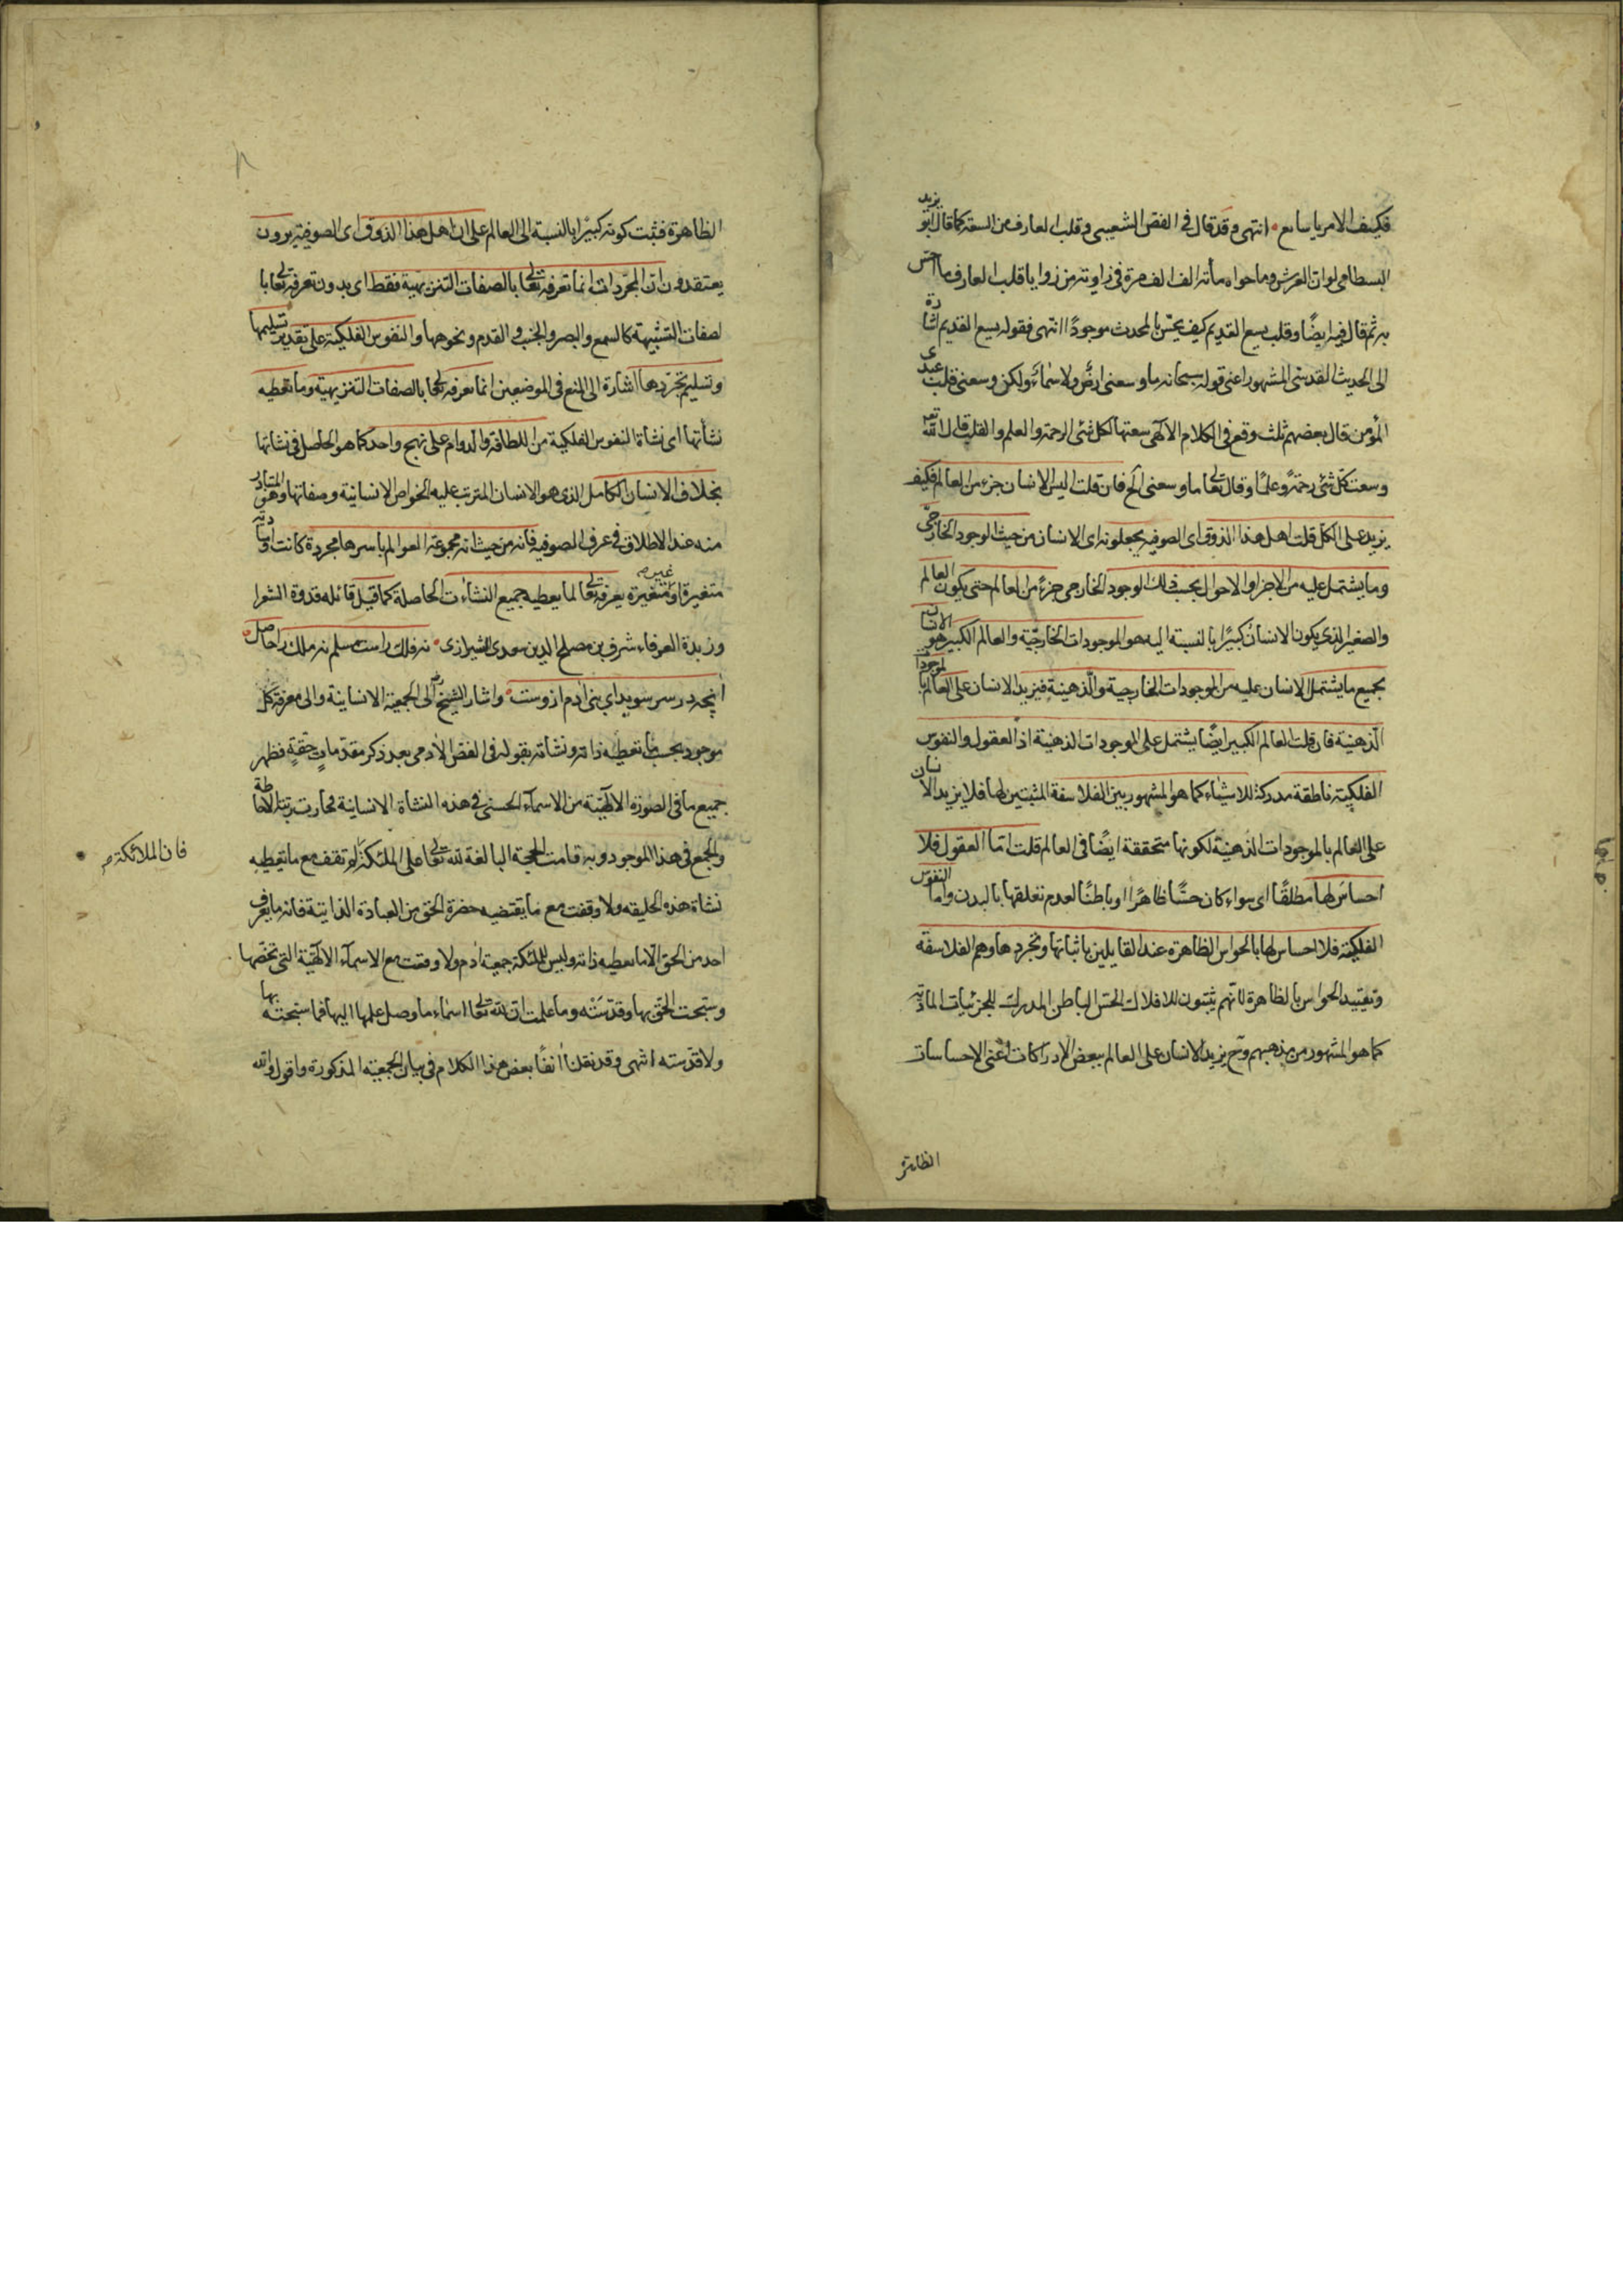 فكيف الامر يا سامع انتهى وقد قال في الفص الشعيبي وقلب العارف من السعة كما قال ابو يزيد
البسطامي لو ان العرش وما حواه مأته الف الف مرة في زاوية من زوايا قلب العارف ما احس
به ثم قال فيه ايضًا وقلب يسع القديم كيف يحسّ بالمحدث موجودًا انتهى فقوله يسع القديم اشارة
الى الحديث القدسي المشهور اعني قوله سبحانه ما وسعني ارضي ولا سمائي ولكن وسعني قلب عبدي
المؤمن قال بعضهم ثلث وقع في الكلام الالهي سعتها لكل شئ الرحمة والعلم والقلب قال الله تعـ
وسعت كلّ شئ رحمةً وعلمًا وقال تعالى ما وسعني الخ فان قلت اليس الانسان جزء من العالم فكيف
يزيد على الكل قلت اهل هذا الذوق اى الصوفيه يجعلونه اى الانسان من حيث الوجود الخارجي
وما يشتمل عليه من الاجزا والاحوال بحسب ذلك الوجود الخارجي جزءً من العالم حتى يكون العالم
والصغير الذي يكون الانسان كبيرًا بالنسبة اليه هو الموجودات الخارجيّة والعالم الكبير هو الانسان
بجميع ما يشتمل الانسان عليه من الموجودات الخارجية والذهنية فيزيد الانسان على العالم بالموجودا
الذهنية فان قلت العالم الكبير ايضًا يشتمل على الموجودات الذهنية اذ العقول والنفوس
الفلكية ناطقة مدركة للاشياء كما هو المشهور بين الفلاسفة المثبتين لها فلا يزيد الانسان
على العالم بالموجودات الذهنية لكونها متحققة ايضًا في العالم قلت اما العقول فلا
احساس لها مطلقًا اى سواء كان حسًّا ظاهرًا او باطنًا لعدم تعلقها بالبدن واما النفوس
الفلكية فلا احساس لها بالحواس الظاهرة عند القايلين باثباتها وتجردها وهم الفلاسفة
وتقييد الحواس بالظاهرة لانهم يثبتون للافلاك الحسّ الباطن المدرك للجزئيات المادية
كما هو المشهور من مذهبهم وح يزيد الانسان على العالم ببعض الادراكات اعني الاحساسات
الظاهرة
الظاهرة فثبت كونه كبيرًا بالنسبة الى العالم على ان اهل هذا الذوق اى الصوفية يرون
يعتقدون ان المجردات انما تعرفه تعالى بالصفات التنزيهية فقط اى بدون تعرفه تعالى با
لصفات التشبيهة كالسمع والبصر والجنب و القدم ونحوها والنفوس الفلكية على تقدير تسليمها
وتسليم تجرّدها اشارة الى المنع في الموضعين انما تعرفه تعالى بالصفات التنزيهية وما تعطيه
نشأتها اى نشاة النفوس الفلكية من اللطافة والدوام على نهج واحد كما هو الحاصل في نشاتها
بخلاف الانسان الكامل الذى هو الانسان المترتب عليه الخواص الانسانية وصفاتها وهو المتبادر
منه عند الاطلاق في عرف الصوفيه فانه من حيث انه مجموعة العوالم باسرها مجردة كانت او مادية
متغيرة او غير متغيرة يعرفه تعالى لما يعطيه جميع النشاءت الحاصلة كما قيل قائله قدوة الشعرا
وزبدة العرفاء شرف بن مصلح الدين سعدى الشيرازى نه فلك راست مسلم نه ملك را حاصل
آنچه در سر سويداي بنى آدم ازوست واشار الشيخ الى الجمعية الانسانية والى معرفة كل
موجود بحسب ما تعطيه ذاته ونشاته بقوله في الفص الآدمي بعد ذكر مقدمات حقة فظهر
جميع ما في الصورة الالهيّة من الاسمآء الحسنى في هذه النشاة الانسانية فحازت رتبة الاحاطة
والجمع في هذا الموجود وبه قامت الحجة البالغة لله تعالى على الملئكة لم تقف مع ما يعطيه
فان الملائكة صح
نشاة هذه الخليفه ولا وقفت مع ما يقتضيه حضرة الحق من العبادة الذاتية فانه ما يعرف
احد من الحق الا ما يعطيه ذاته وليس للملئكة جمعية آدم ولا وقفت مع الاسمآء الالهيّة التي تخصّها
وسبحت الحق بها وقدّسته وما علمت ان لله تعالى اسماء ما وصل علمها اليها فما سبحته بها
ولا قدّسته انتهى وقد نقلنا آنفًا بعض هذا الكلام في بيان الجمعية المذكورة واقول والله